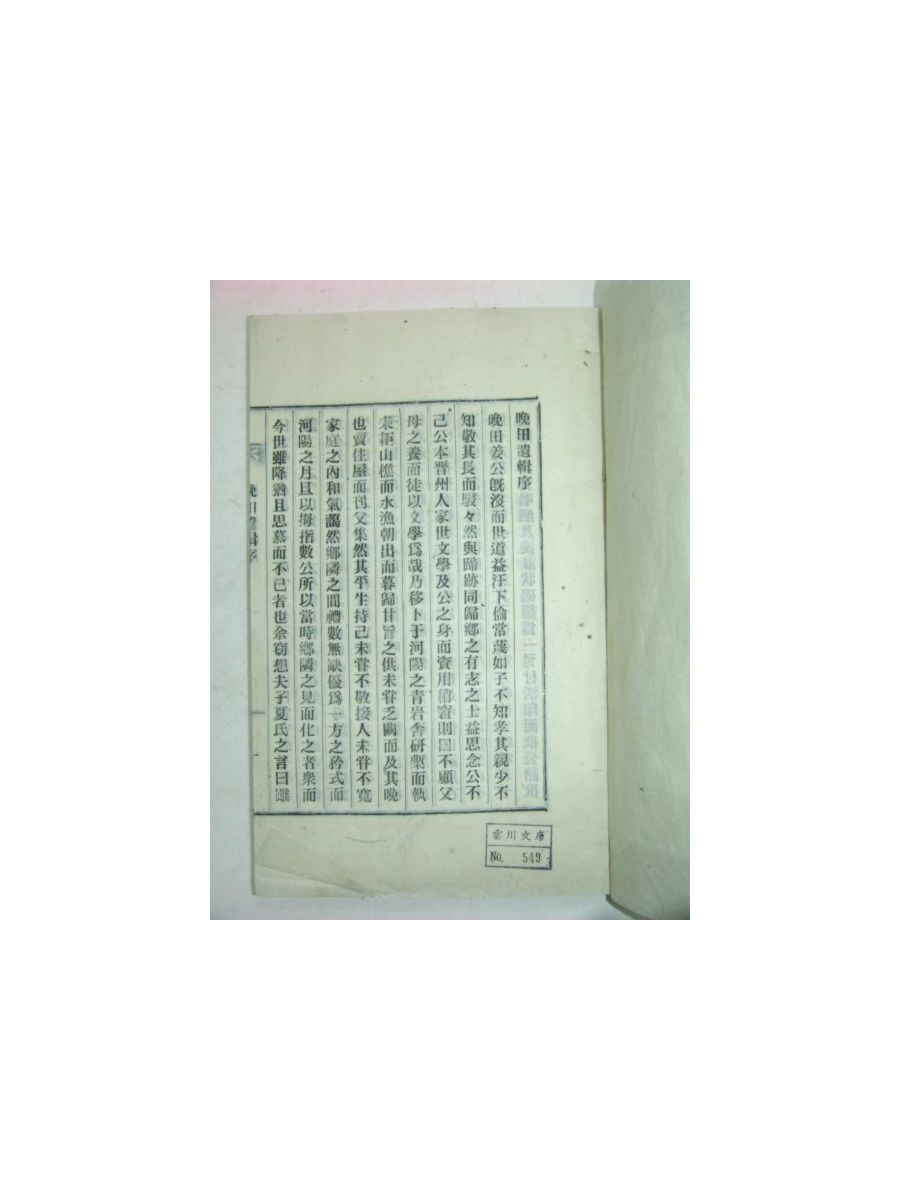 晩田遺輯序
晩田姜公旣沒而世道益汙下倫常蔑如子不知孝其親少不
知敬其長而駸々然與蹄跡同歸鄕之有志之士益思念公不
已公本晋州人家世文學及公之身而資用稍窘則曰不顧父
母之養而徒以文學爲哉乃移卜于河陽之靑岩舍研槧而執
耒耟山樵而水漁朝出而暮歸甘旨之供未甞乏闕而及其晩
也賣佳屋而刊父集然其平生持己未甞不敬接人未甞不寬
家庭之內和氣藹然鄕隣之間禮數無缺優爲一方之矜式而
河陽之月旦以每指數公所以當時鄕隣之見而化之者衆而
今世雖降猶且思慕而不已者也余竊想夫子夏氏之言曰雖
晩田遺輯序
一
雲川文庫
No. 549